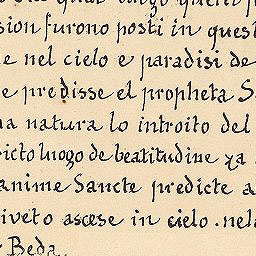 sion furono posti in quest
e nel cielo e paradisi de
e predisse el propheta S
na natura lo introito del
ricto luogo de beatitudine za
anime Sancte predicte a
iveto ascese in cielo . nela
Beda.